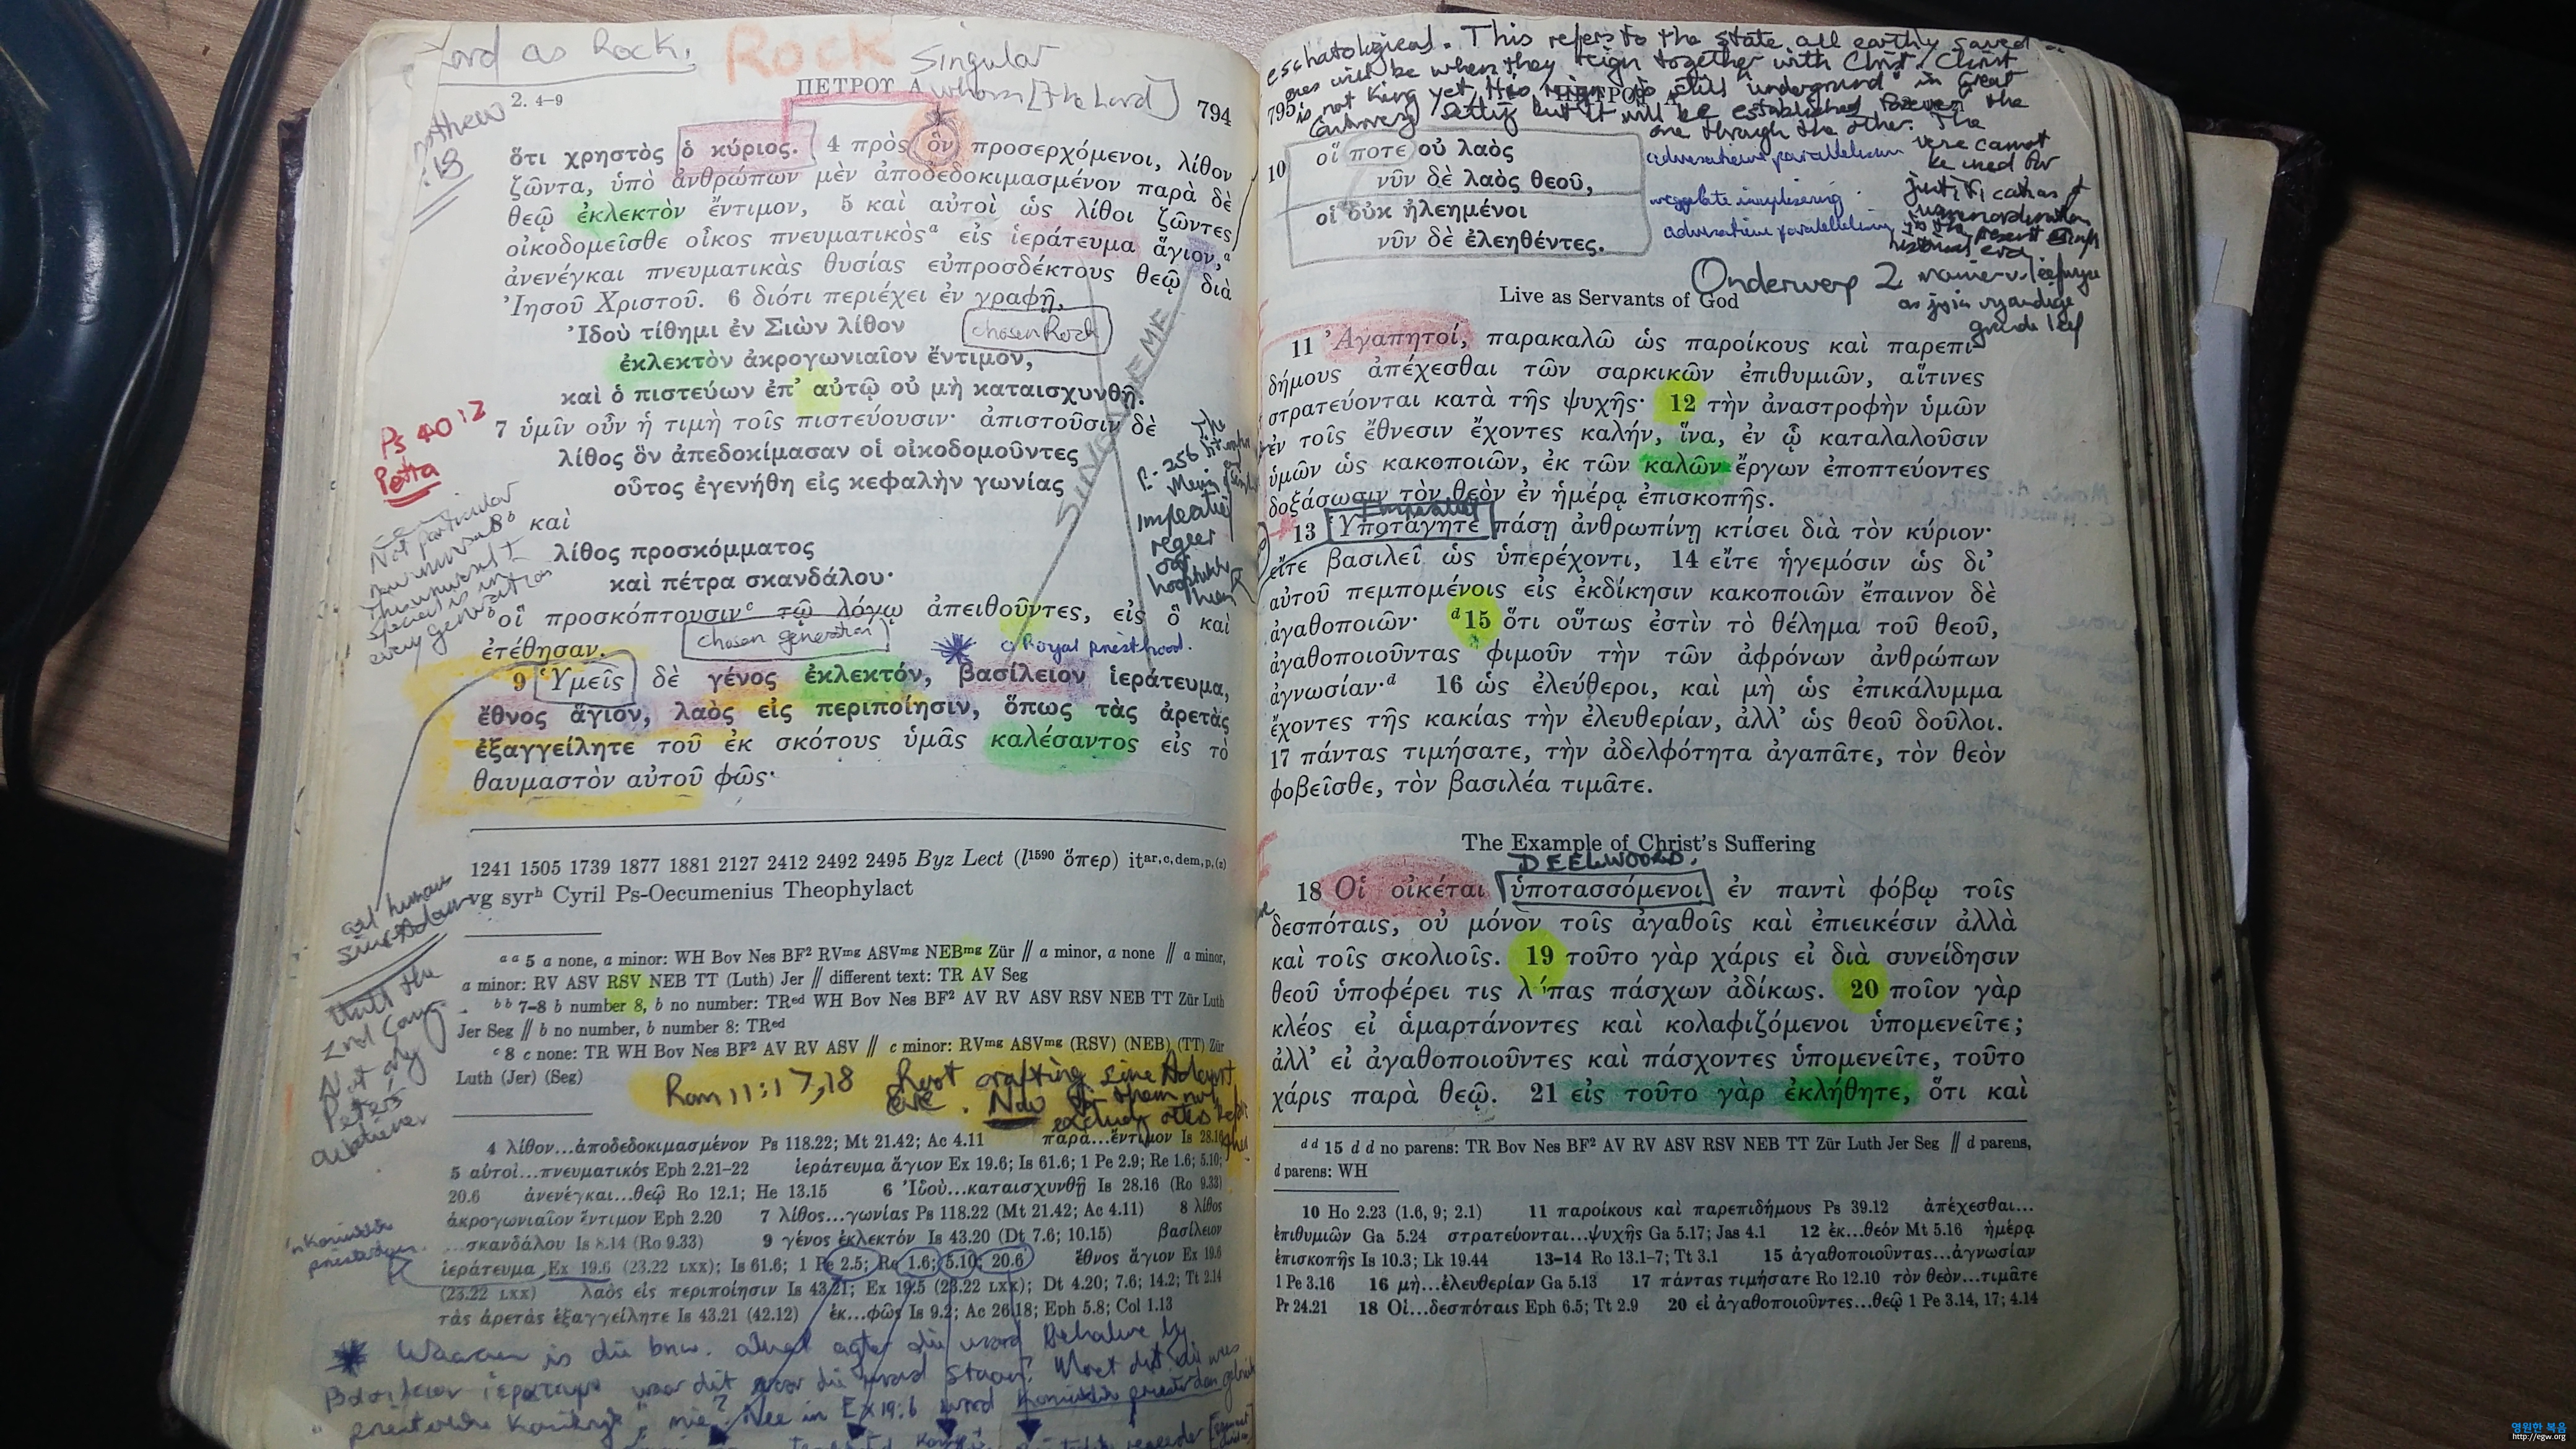 ord as Rock.
Rock
Singular
2. 4–9
ΠΕΤΡΟΥ Α
whom [the Lord]
794
ὅτι χρηστὸς ὁ κύριος. 4 πρὸς ὃν προσερχόμενοι, λίθον
ζῶντα, ὑπὸ ἀνθρώπων μὲν ἀποδεδοκιμασμένον παρὰ δὲ
θεῷ ἐκλεκτὸν ἔντιμον, 5 καὶ αὐτοὶ ὡς λίθοι ζῶντες
οἰκοδομεῖσθε οἶκος πνευματικὸςᵃ εἰς ἱεράτευμα ἅγιον,ᵃ
ἀνενέγκαι πνευματικὰς θυσίας εὐπροσδέκτους θεῷ διὰ
Ἰησοῦ Χριστοῦ. 6 διότι περιέχει ἐν γραφῇ,
Ἰδοὺ τίθημι ἐν Σιὼν λίθον
chosen Rock
ἐκλεκτὸν ἀκρογωνιαῖον ἔντιμον,
καὶ ὁ πιστεύων ἐπ’ αὐτῷ οὐ μὴ καταισχυνθῇ.
Ps 40¹²
Petra
7 ὑμῖν οὖν ἡ τιμὴ τοῖς πιστεύουσιν· ἀπιστοῦσιν δὲ
λίθος ὃν ἀπεδοκίμασαν οἱ οἰκοδομοῦντες
οὗτος ἐγενήθη εἰς κεφαλὴν γωνίας
8ᵇ καὶ
λίθος προσκόμματος
καὶ πέτρα σκανδάλου·
οἳ προσκόπτουσινᶜ τῷ λόγῳ ἀπειθοῦντες, εἰς ὃ καὶ
chosen generation
Royal priesthood.
ἐτέθησαν.
9 Ὑμεῖς δὲ γένος ἐκλεκτόν, βασίλειον ἱεράτευμα,
ἔθνος ἅγιον, λαὸς εἰς περιποίησιν, ὅπως τὰς ἀρετὰς
ἐξαγγείλητε τοῦ ἐκ σκότους ὑμᾶς καλέσαντος εἰς τὸ
θαυμαστὸν αὐτοῦ φῶς·
1241 1505 1739 1877 1881 2127 2412 2492 2495 Byz Lect (l¹⁵⁹⁰ ὅπερ) itᵃʳ,ᶜ,ᵈᵉᵐ,ᵖ,⁽ᶻ⁾
vg syrʰ Cyril Ps-Oecumenius Theophylact
all human
since Adam
until the
2nd Coming
Not only
Peter's
audience
ᵃ ᵃ 5 a none, a minor: WH Bov Nes BF² RVᵐᵍ ASVᵐᵍ NEBᵐᵍ Zür // a minor, a none // a minor,
a minor: RV ASV RSV NEB TT (Luth) Jer // different text: TR AV Seg
ᵇ ᵇ 7–8 b number 8, b no number: TRᵉᵈ WH Bov Nes BF² AV RV ASV RSV NEB TT Zür Luth
Jer Seg // b no number, b number 8: TRᵉᵈ
ᶜ 8 c none: TR WH Bov Nes BF² AV RV ASV // c minor: RVᵐᵍ ASVᵐᵍ (RSV) (NEB) (TT) Zür
Luth (Jer) (Seg)
Rom 11:17,18
Root grafting since Adam
Eve. Now
4 λίθον...ἀποδεδοκιμασμένον Ps 118.22; Mt 21.42; Ac 4.11 παρὰ...ἔντιμον Is 28.16
5 αὐτοὶ...πνευματικός Eph 2.21–22 ἱεράτευμα ἅγιον Ex 19.6; Is 61.6; 1 Pe 2.9; Re 1.6; 5.10;
20.6 ἀνενέγκαι...θεῷ Ro 12.1; He 13.15 6 Ἰδοὺ...καταισχυνθῇ Is 28.16 (Ro 9.33)
ἀκρογωνιαῖον ἔντιμον Eph 2.20 7 λίθος...γωνίας Ps 118.22 (Mt 21.42; Ac 4.11) 8 λίθος
...σκανδάλου Is 8.14 (Ro 9.33) 9 γένος ἐκλεκτόν Is 43.20 (Dt 7.6; 10.15) βασίλειον
ἱεράτευμα Ex 19.6 (23.22 LXX); Is 61.6; 1 Pe 2.5; Re 1.6; 5.10; 20.6 ἔθνος ἅγιον Ex 19.6
(23.22 LXX) λαὸς εἰς περιποίησιν Is 43.21; Ex 19.5 (23.22 LXX); Dt 4.20; 7.6; 14.2; Tt 2.14
τὰς ἀρετὰς ἐξαγγείλητε Is 43.21 (42.12) ἐκ...φῶς Is 9.2; Ac 26.18; Eph 5.8; Col 1.13
Waarom is die bnw. alwat agter die woord
eschatological. This refers to the state all earthly saved
ones will be when they reign together with Christ. Christ
is not King yet. His reign is still "underground" in Great
Controversy setting but it will be established forever the
one through the other. The
795
ΠΕΤΡΟΥ Α
10 οἵ ποτε οὐ λαὸς
νῦν δὲ λαὸς θεοῦ,
οἱ οὐκ ἠλεημένοι
νῦν δὲ ἐλεηθέντες.
Onderwerp 2.
Live as Servants of God
11 Ἀγαπητοί, παρακαλῶ ὡς παροίκους καὶ παρεπι-
δήμους ἀπέχεσθαι τῶν σαρκικῶν ἐπιθυμιῶν, αἵτινες
στρατεύονται κατὰ τῆς ψυχῆς· 12 τὴν ἀναστροφὴν ὑμῶν
ἐν τοῖς ἔθνεσιν ἔχοντες καλήν, ἵνα, ἐν ᾧ καταλαλοῦσιν
ὑμῶν ὡς κακοποιῶν, ἐκ τῶν καλῶν ἔργων ἐποπτεύοντες
δοξάσωσιν τὸν θεὸν ἐν ἡμέρᾳ ἐπισκοπῆς.
13 Ὑποτάγητε πάσῃ ἀνθρωπίνῃ κτίσει διὰ τὸν κύριον·
εἴτε βασιλεῖ ὡς ὑπερέχοντι, 14 εἴτε ἡγεμόσιν ὡς δι’
αὐτοῦ πεμπομένοις εἰς ἐκδίκησιν κακοποιῶν ἔπαινον δὲ
ἀγαθοποιῶν· ᵈ15 ὅτι οὕτως ἐστὶν τὸ θέλημα τοῦ θεοῦ,
ἀγαθοποιοῦντας φιμοῦν τὴν τῶν ἀφρόνων ἀνθρώπων
ἀγνωσίαν·ᵈ 16 ὡς ἐλεύθεροι, καὶ μὴ ὡς ἐπικάλυμμα
ἔχοντες τῆς κακίας τὴν ἐλευθερίαν, ἀλλ’ ὡς θεοῦ δοῦλοι.
17 πάντας τιμήσατε, τὴν ἀδελφότητα ἀγαπᾶτε, τὸν θεὸν
φοβεῖσθε, τὸν βασιλέα τιμᾶτε.
The Example of Christ's Suffering
DEELWOORD.
18 Οἱ οἰκέται ὑποτασσόμενοι ἐν παντὶ φόβῳ τοῖς
δεσπόταις, οὐ μόνον τοῖς ἀγαθοῖς καὶ ἐπιεικέσιν ἀλλὰ
καὶ τοῖς σκολιοῖς. 19 τοῦτο γὰρ χάρις εἰ διὰ συνείδησιν
θεοῦ ὑποφέρει τις λύπας πάσχων ἀδίκως. 20 ποῖον γὰρ
κλέος εἰ ἁμαρτάνοντες καὶ κολαφιζόμενοι ὑπομενεῖτε;
ἀλλ’ εἰ ἀγαθοποιοῦντες καὶ πάσχοντες ὑπομενεῖτε, τοῦτο
χάρις παρὰ θεῷ. 21 εἰς τοῦτο γὰρ ἐκλήθητε, ὅτι καὶ
ᵈ ᵈ 15 d d no parens: TR Bov Nes BF² AV RV ASV RSV NEB TT Zür Luth Jer Seg // d parens,
d parens: WH
10 Ho 2.23 (1.6, 9; 2.1) 11 παροίκους καὶ παρεπιδήμους Ps 39.12 ἀπέχεσθαι...
ἐπιθυμιῶν Ga 5.24 στρατεύονται...ψυχῆς Ga 5.17; Jas 4.1 12 ἐκ...θεόν Mt 5.16 ἡμέρᾳ
ἐπισκοπῆς Is 10.3; Lk 19.44 13–14 Ro 13.1–7; Tt 3.1 15 ἀγαθοποιοῦντας...ἀγνωσίαν
1 Pe 3.16 16 μὴ...ἐλευθερίαν Ga 5.13 17 πάντας τιμήσατε Ro 12.10 τὸν θεὸν...τιμᾶτε
Pr 24.21 18 Οἱ...δεσπόταις Eph 6.5; Tt 2.9 20 εἰ ἀγαθοποιοῦντες...θεῷ 1 Pe 3.14, 17; 4.14
영원한 복음
http://egw.org